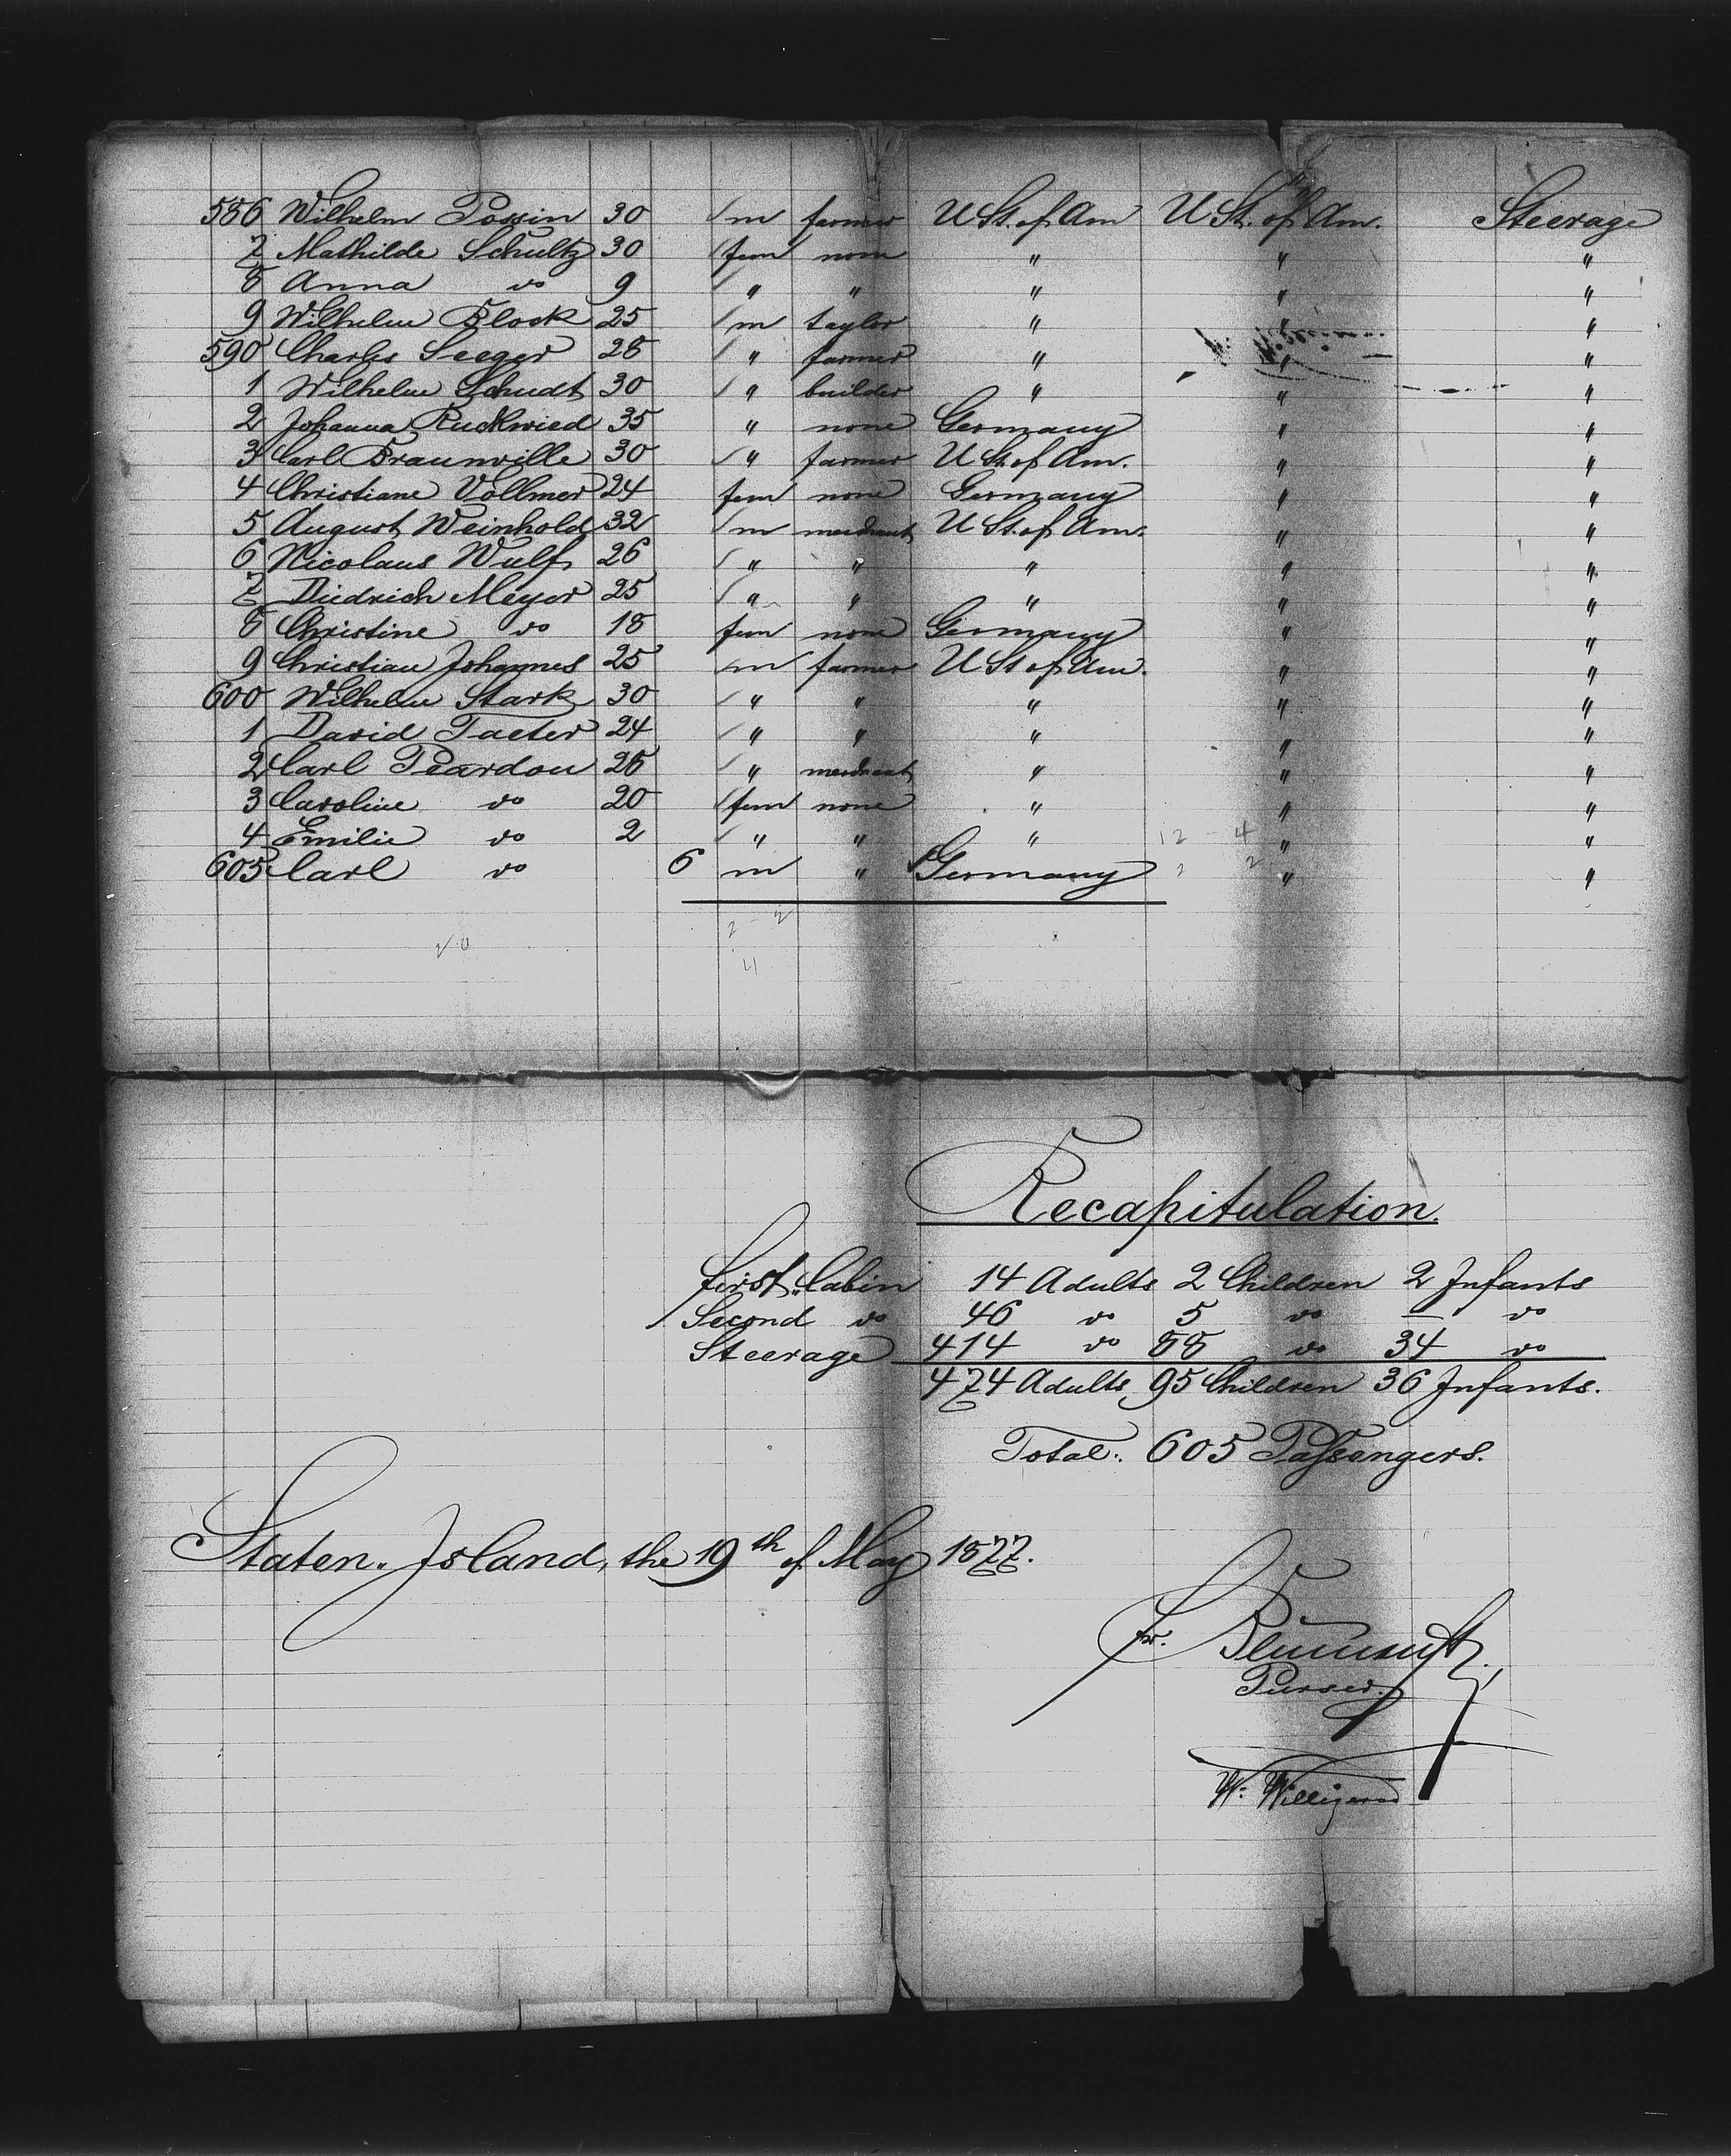 586 Wilhelm Possin 30 m farmer U St. of Am U St. of Am. Steerage
7 Mathilde Schultz 30 fem none " " "
8 Anna do 9 " " " " "
9 Wilhelm Block 25 m taylor " " "
590 Charles Seeger 28 " farmer " " "
1 Wilhelm Schudt 30 " builder " " "
2 Johanna Ruckwied 35 " none Germany " "
3 Carl Braunville 30 " farmer U St. of Am. " "
4 Christiane Vollmer 24 fem none Germany " "
5 August Weinhold 32 m merchant U St. of Am. " "
6 Nicolaus Wulf 26 " " " " "
7 Diedrich Meyer 25 " " " " "
8 Christine do 18 fem none Germany " "
9 Christian Johannes 25 m farmer U St of Am. " "
600 Wilhelm Stark 30 " " " " "
1 David Taeter 24 " " " " "
2 Carl Peardon 28 " merchant " " "
3 Caroline do 20 fem none " " "
4 Emilie do 2 " " " " "
605 Carl do 6 m " Germany " "
Recapitulation.
First Cabin 14 Adults 2 Children 2 Infants
Second do 46 do 5 do — do
Steerage 414 do 88 do 34 do
474 Adults 95 Children 36 Infants.
Total: 605 Passengers.
Staten. Island, the 19th of May 1877.
Purser.
W. Willigerod